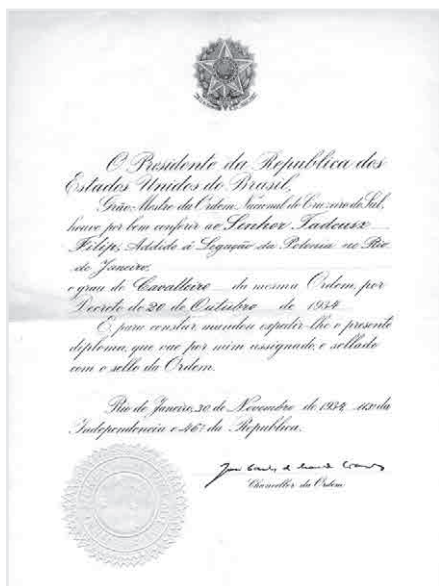 O Presidente da Republica dos
Estados Unidos do Brasil,
Grão-Mestre da Ordem Nacional do Cruzeiro do Sul,
houve por bem conferir ao Senhor Tadeusz
Filip, Addido á Legação da Polonia no Rio
de Janeiro,
o grau de Cavalleiro da mesma Ordem, por
Decreto de 20 de Outubro de 1934
E, para constar mandou expedir-lhe o presente
diploma, que vae por mim assignado, e sellado
com o sello da Ordem.
Rio de Janeiro, 30 de Novembro de 1934, 113º da
Independencia e 46º da Republica.
Chanceller da Ordem